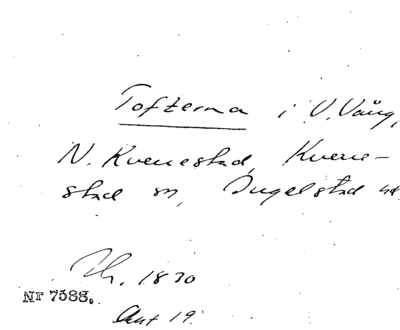 Tofterna i V. Vång,
N. Kvenestad, Kvene-
stad sn, Ingelstad hd
Th. 1830
Nr 7388.
Akt 19.